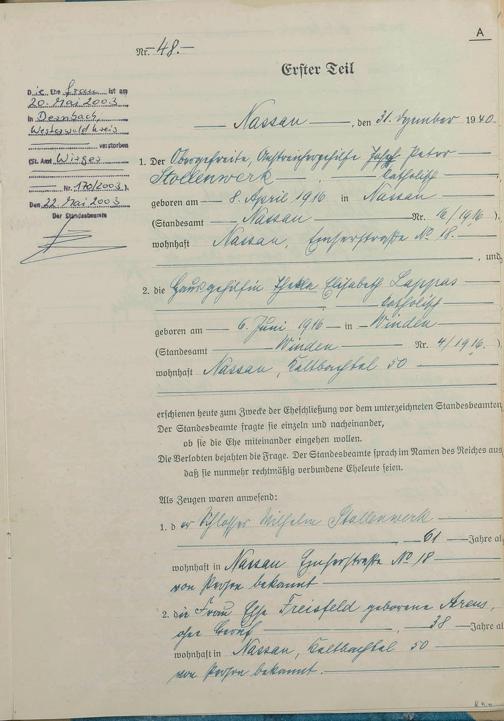 A
Nr. 48.
Erster Teil
Die Ehefrau ist am
20. Mai 2003
in Dernbach,
Westerwaldkreis
verstorben
(St. Amt Wirges
Nr. 170/2003)
Den 22. Mai 2003
Der Standesbeamte
Nassau, den 31. Dezember 1940.
1. Der Obergefreite, Peter
Stollenwerk katholisch,
geboren am 8. April 1916 in Nassau
(Standesamt Nassau Nr. 16/1916),
wohnhaft Nassau, Emserstraße No 18.
, und
2. die Hausgehilfin Thekla Elisabeth Lappas
katholisch
geboren am 6. Juni 1916 in Winden
(Standesamt Winden Nr. 4/1916.)
wohnhaft Nassau, Kaltbachtal 50
erschienen heute zum Zwecke der Eheschließung vor dem unterzeichneten Standesbeamten
Der Standesbeamte fragte sie einzeln und nacheinander,
ob sie die Ehe miteinander eingehen wollen.
Die Verlobten bejahten die Frage. Der Standesbeamte sprach im Namen des Reiches aus
daß sie nunmehr rechtmäßig verbundene Eheleute seien.
Als Zeugen waren anwesend:
1. der Schlosser Wilhelm Stollenwerk
61 Jahre al
wohnhaft in Nassau Emserstraße No 18
von Person bekannt
2. die Frau Else Freisfeld geborene Arens,
ohne Beruf, 38 Jahre al
wohnhaft in Nassau, Kaltbachtal 50
von Person bekannt.